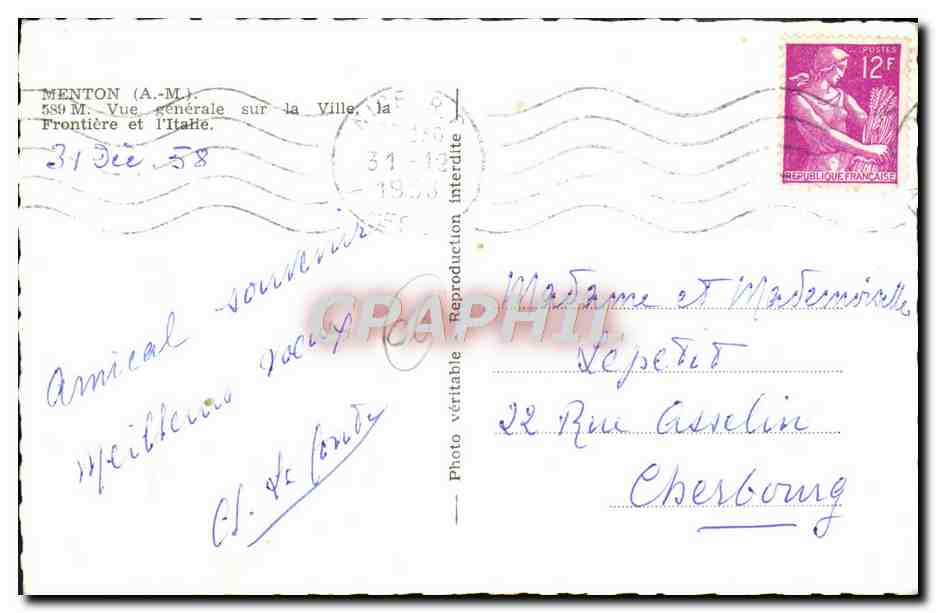 MENTON (A.-M.).
589 M. Vue générale sur la Ville, la
Frontière et l'Italie.
31 Déc. 58
31 -12
Amical souvenir
Meilleurs voeux
Photo véritable Reproduction interdite
CPAPHIL
POSTES
12F
REPUBLIQUE FRANÇAISE
Madame et Mademoiselle
Lepetit
22 Rue Asselin
Cherbourg